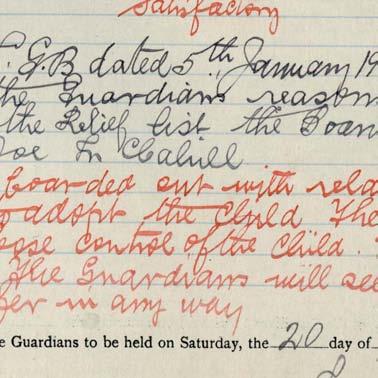 Satisfactory
G.B dated 5th January 19
the Guardians reason
the Relief list the Boar
Joe Mc Cahill
boarded out with rela
adopt the Child The
control of the Child.
The Guardians will see
her in any way
e Guardians to be held on Saturday, the 20 day of